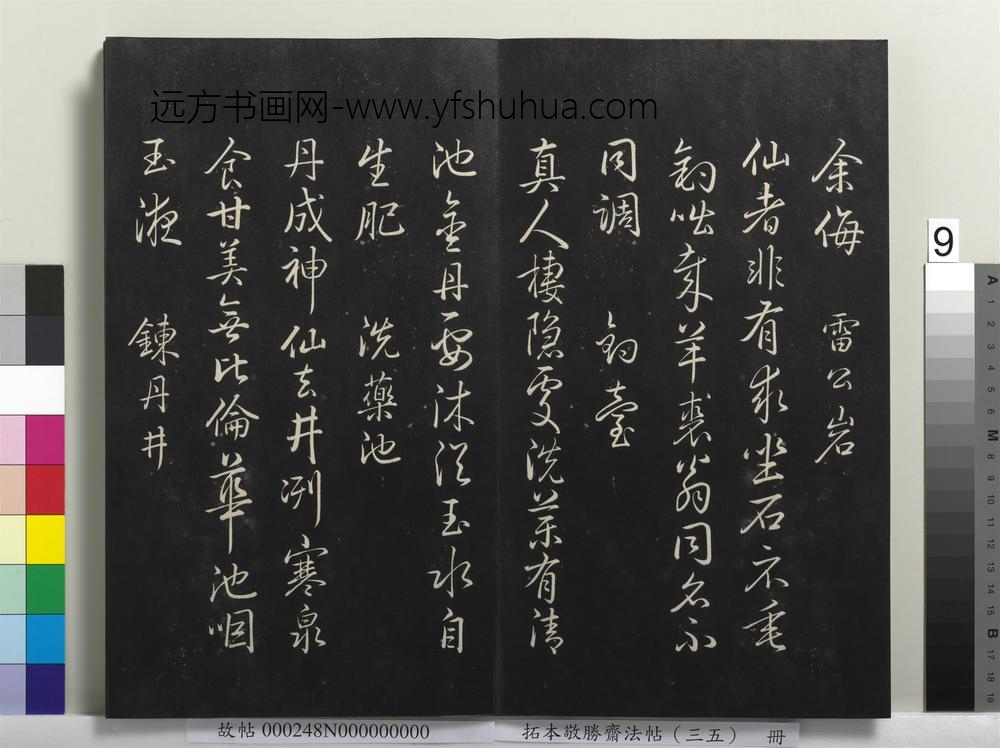 远方书画网-www.yfshuhua.com
余侮 雷公岩
仙者非有求坐石不垂
釣咄哉羊裘翁同名不
同調 釣臺
真人棲隱處洗藥有清
池金丹要沐浴玉水自
生肥 洗藥池
丹成神仙去井冽寒泉
食甘美無比倫華池咽
玉液 鍊丹井
故帖 000248N000000000
拓本敬勝齋法帖（三五） 冊
9
A
1
2
3
4
5
6
M
8
9
10
11
12
13
14
15
B
17
18
19